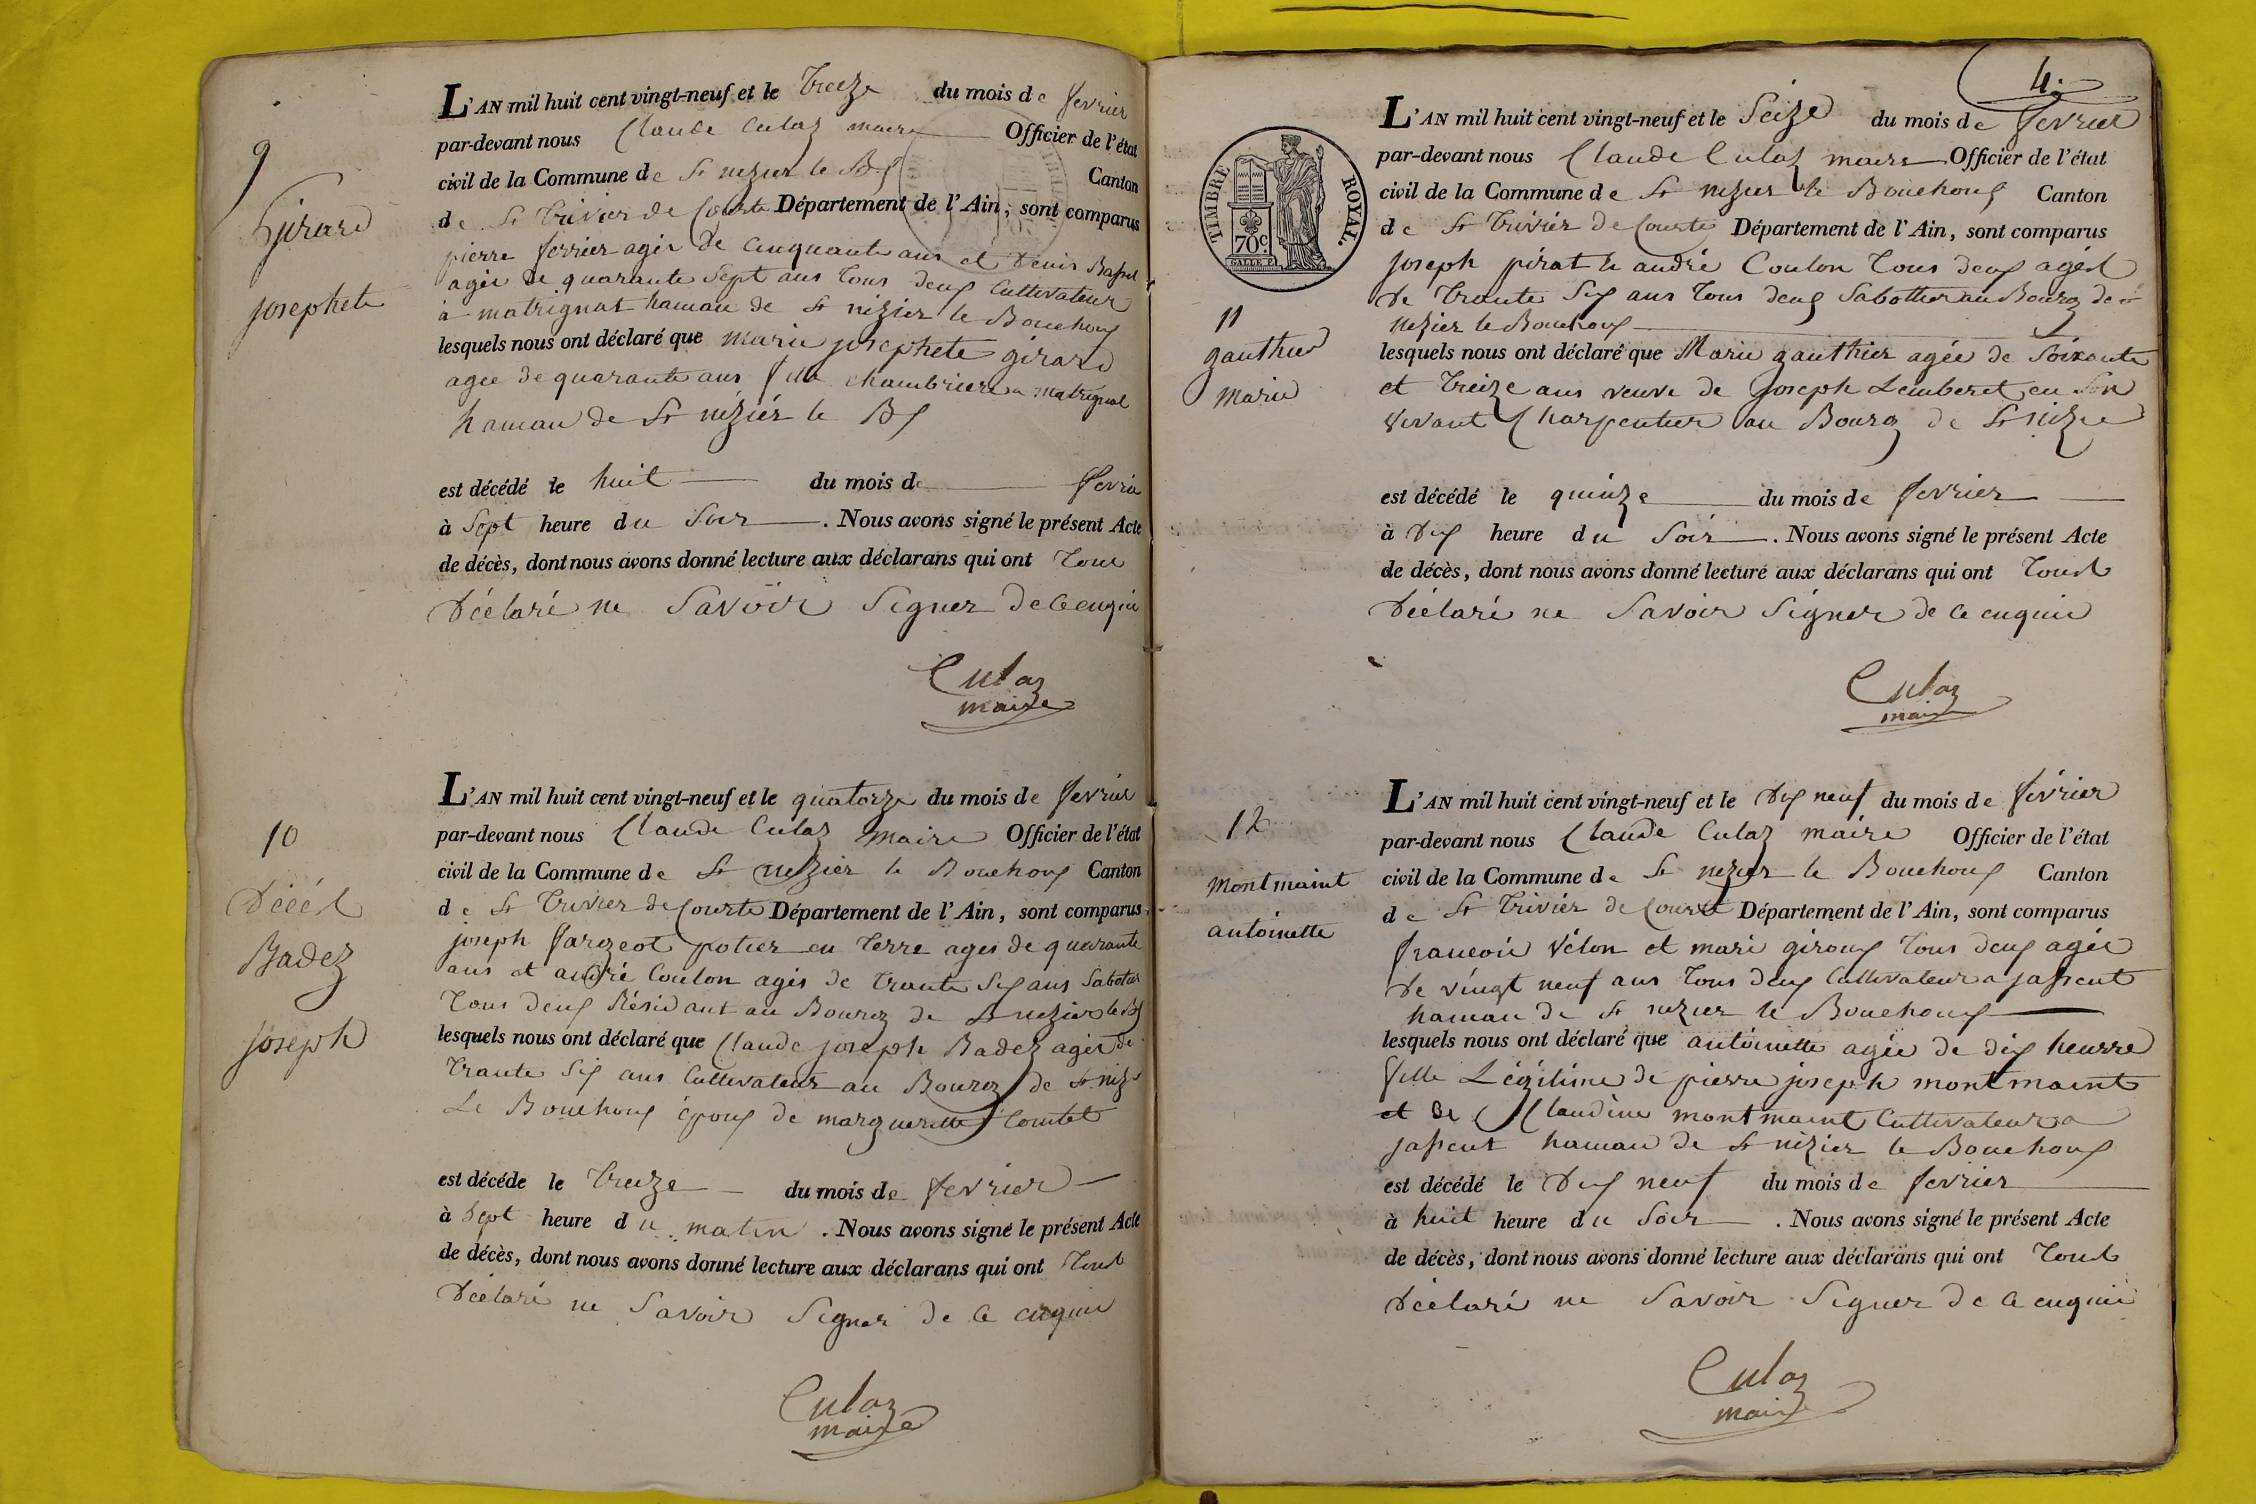 9
Girard
josephete
L'AN mil huit cent vingt-neuf et le Treize du mois de fevrier
par-devant nous Claude Culaz maire Officier de l'état
civil de la Commune de St nezier le Bx Canton
de St Trivier de Courte Département de l'Ain, sont comparus
pierre ferrier agér de cinquante ans et Denis
agér de quarante Sept ans Tous deux Cultivateur
à matrignat hamau de St nizier le Bouchoux
lesquels nous ont déclaré que marie josephete girard
agee de quarante ans fille chambriere a matrignat
hamau de St néziér le Bx
est décédé le huit du mois de fevrie
à Sept heure du Soir. Nous avons signé le présent Acte
de décès, dont nous avons donné lecture aux déclarans qui ont Tous
Déclaré ne Savoir Signer de ce enquis
Culaz
maire
10
Décés
Badez
joseph
L'AN mil huit cent vingt-neuf et le quatorze du mois de fevrier
par-devant nous Claude Culaz maire Officier de l'état
civil de la Commune de St nezier le Bouchoux Canton
de St Trivier de Courte Département de l'Ain, sont comparus
joseph fargeot potier en Terre ages de quarante
ans et andré Coulon agés de Trante Six ans Sabotier
Tous deux Résidant au Bourg de St nezier le Bx
lesquels nous ont déclaré que Claude joseph Badez agér de
Trante Six ans Cultivateur au Bourg de St niz
Le Bouchoux époux de margueritte Comtet
est décéde le Treize du mois de fevrier
à Sept heure du matin. Nous avons signé le présent Acte
de décès, dont nous avons donné lecture aux déclarans qui ont Tous
Déclaré ne Savoir Signer de ce enquis
Culaz
maire
4.
TIMBRE ROYAL.
70c.
11
gauthier
marie
L'AN mil huit cent vingt-neuf et le Seize du mois de fevrier
par-devant nous Claude Culaz maire Officier de l'état
civil de la Commune de St nezier le Bouchoux Canton
de St Trivier de Courte Département de l'Ain, sont comparus
joseph pirat & andré Coulon Tous deux agés
de Trante Six ans Tous deux Sabottier au Bourg de St
nezier le Bouchoux
lesquels nous ont déclaré que Marie gauthier agée de Soixante
et Treize ans veuve de joseph Lemberet en Son
vivant Charpentier au Bourg de St nizie
est décédé le quinze du mois de fevrier
à Dix heure du Soir. Nous avons signé le présent Acte
de décès, dont nous avons donné lecture aux déclarans qui ont Tous
Déclaré ne Savoir Signer de ce enquis
Culaz
maire
12
montmaint
antoinette
L'AN mil huit cent vingt-neuf et le Dix neuf du mois de février
par-devant nous Claude Culaz maire Officier de l'état
civil de la Commune de St nezier le Bouchoux Canton
de St Trivier de Courte Département de l'Ain, sont comparus
francois Vélon et mari giroux Tous deux agér
de vingt neuf ans Tous deux Cultivateur a jassent
hamau de St nezier le Bouchoux
lesquels nous ont déclaré que antoinette agée de dix heurre
fille Légitime de pierre joseph montmaint
et de Claudine montmaint Cultivateur a
jassent hamau de St nizier le Bouchoux
est décédé le Dix neuf du mois de fevrier
à huit heure du Soir. Nous avons signé le présent Acte
de décès, dont nous avons donné lecture aux déclarans qui ont Tous
Déclaré ne Savoir Signer de ce enquis
Culaz
maire